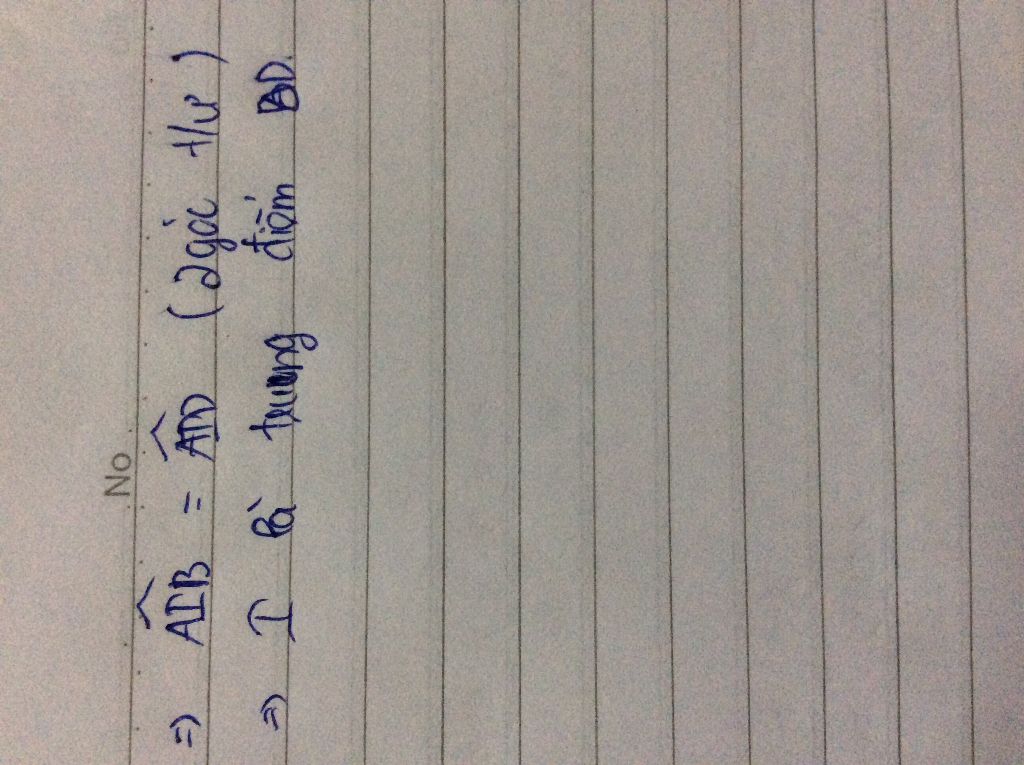 No
⇒ \widehat{AIB} = \widehat{AID} (2 góc t/ư)
⇒ I là trung điểm BD.